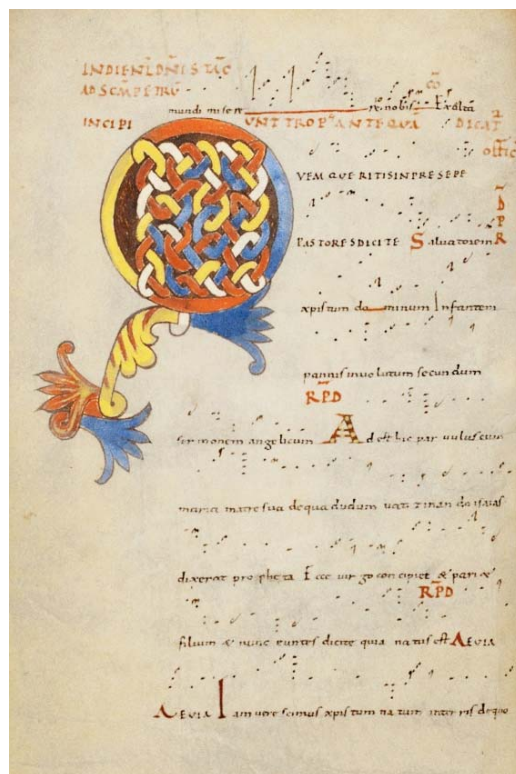 IN DIE N̄L DN̄I STĀC
AD SC̄M PETRŪ
mundi misere re nobis Exalta
INCIPIUNT TROP̄ ANTEQUĀ DICAT̄
offic̄
QUEM QUERITIS IN PRESEPE
PASTORES DICITE Salvatorem
xpistum dominum Infantem
pannis involutum secundum
RP̄D
sermonem angelicum Adest hic parvulus cum
maria matre sua de qua dudum vaticinando isaias
dixerat propheta Ecce virgo concipiet & pari&
RP̄D
filium & nunc euntes dicite quia natus est AEVIA
AEVIA Iam vere scimus xpistum natum interris de quo